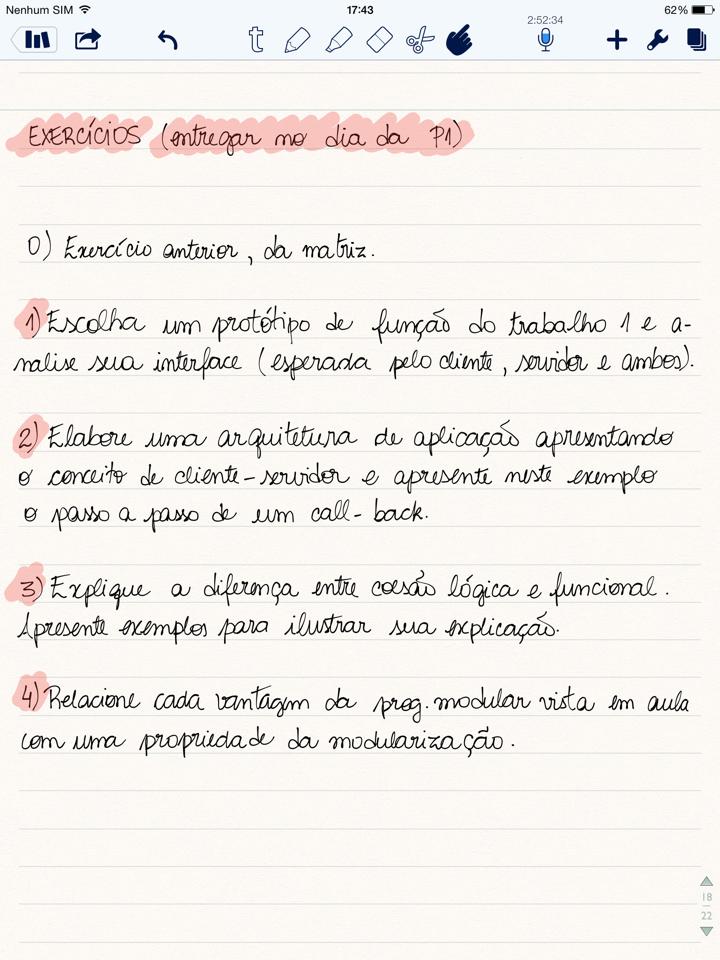 Nenhum SIM 17:43 62%
t 2:52:34
EXERCÍCIOS (entregar no dia da P1)
0) Exercício anterior, da matriz.
1) Escolha um protótipo de função do trabalho 1 e a-
nalise sua interface (esperada pelo cliente, servidor e ambos).
2) Elabore uma arquitetura de aplicação apresentando
o conceito de cliente-servidor e apresente neste exemplo
o passo a passo de um call-back.
3) Explique a diferença entre coesão lógica e funcional.
Apresente exemplos para ilustrar sua explicação.
4) Relacione cada vantagem da prog. modular vista em aula
com uma propriedade da modularização.
18
22